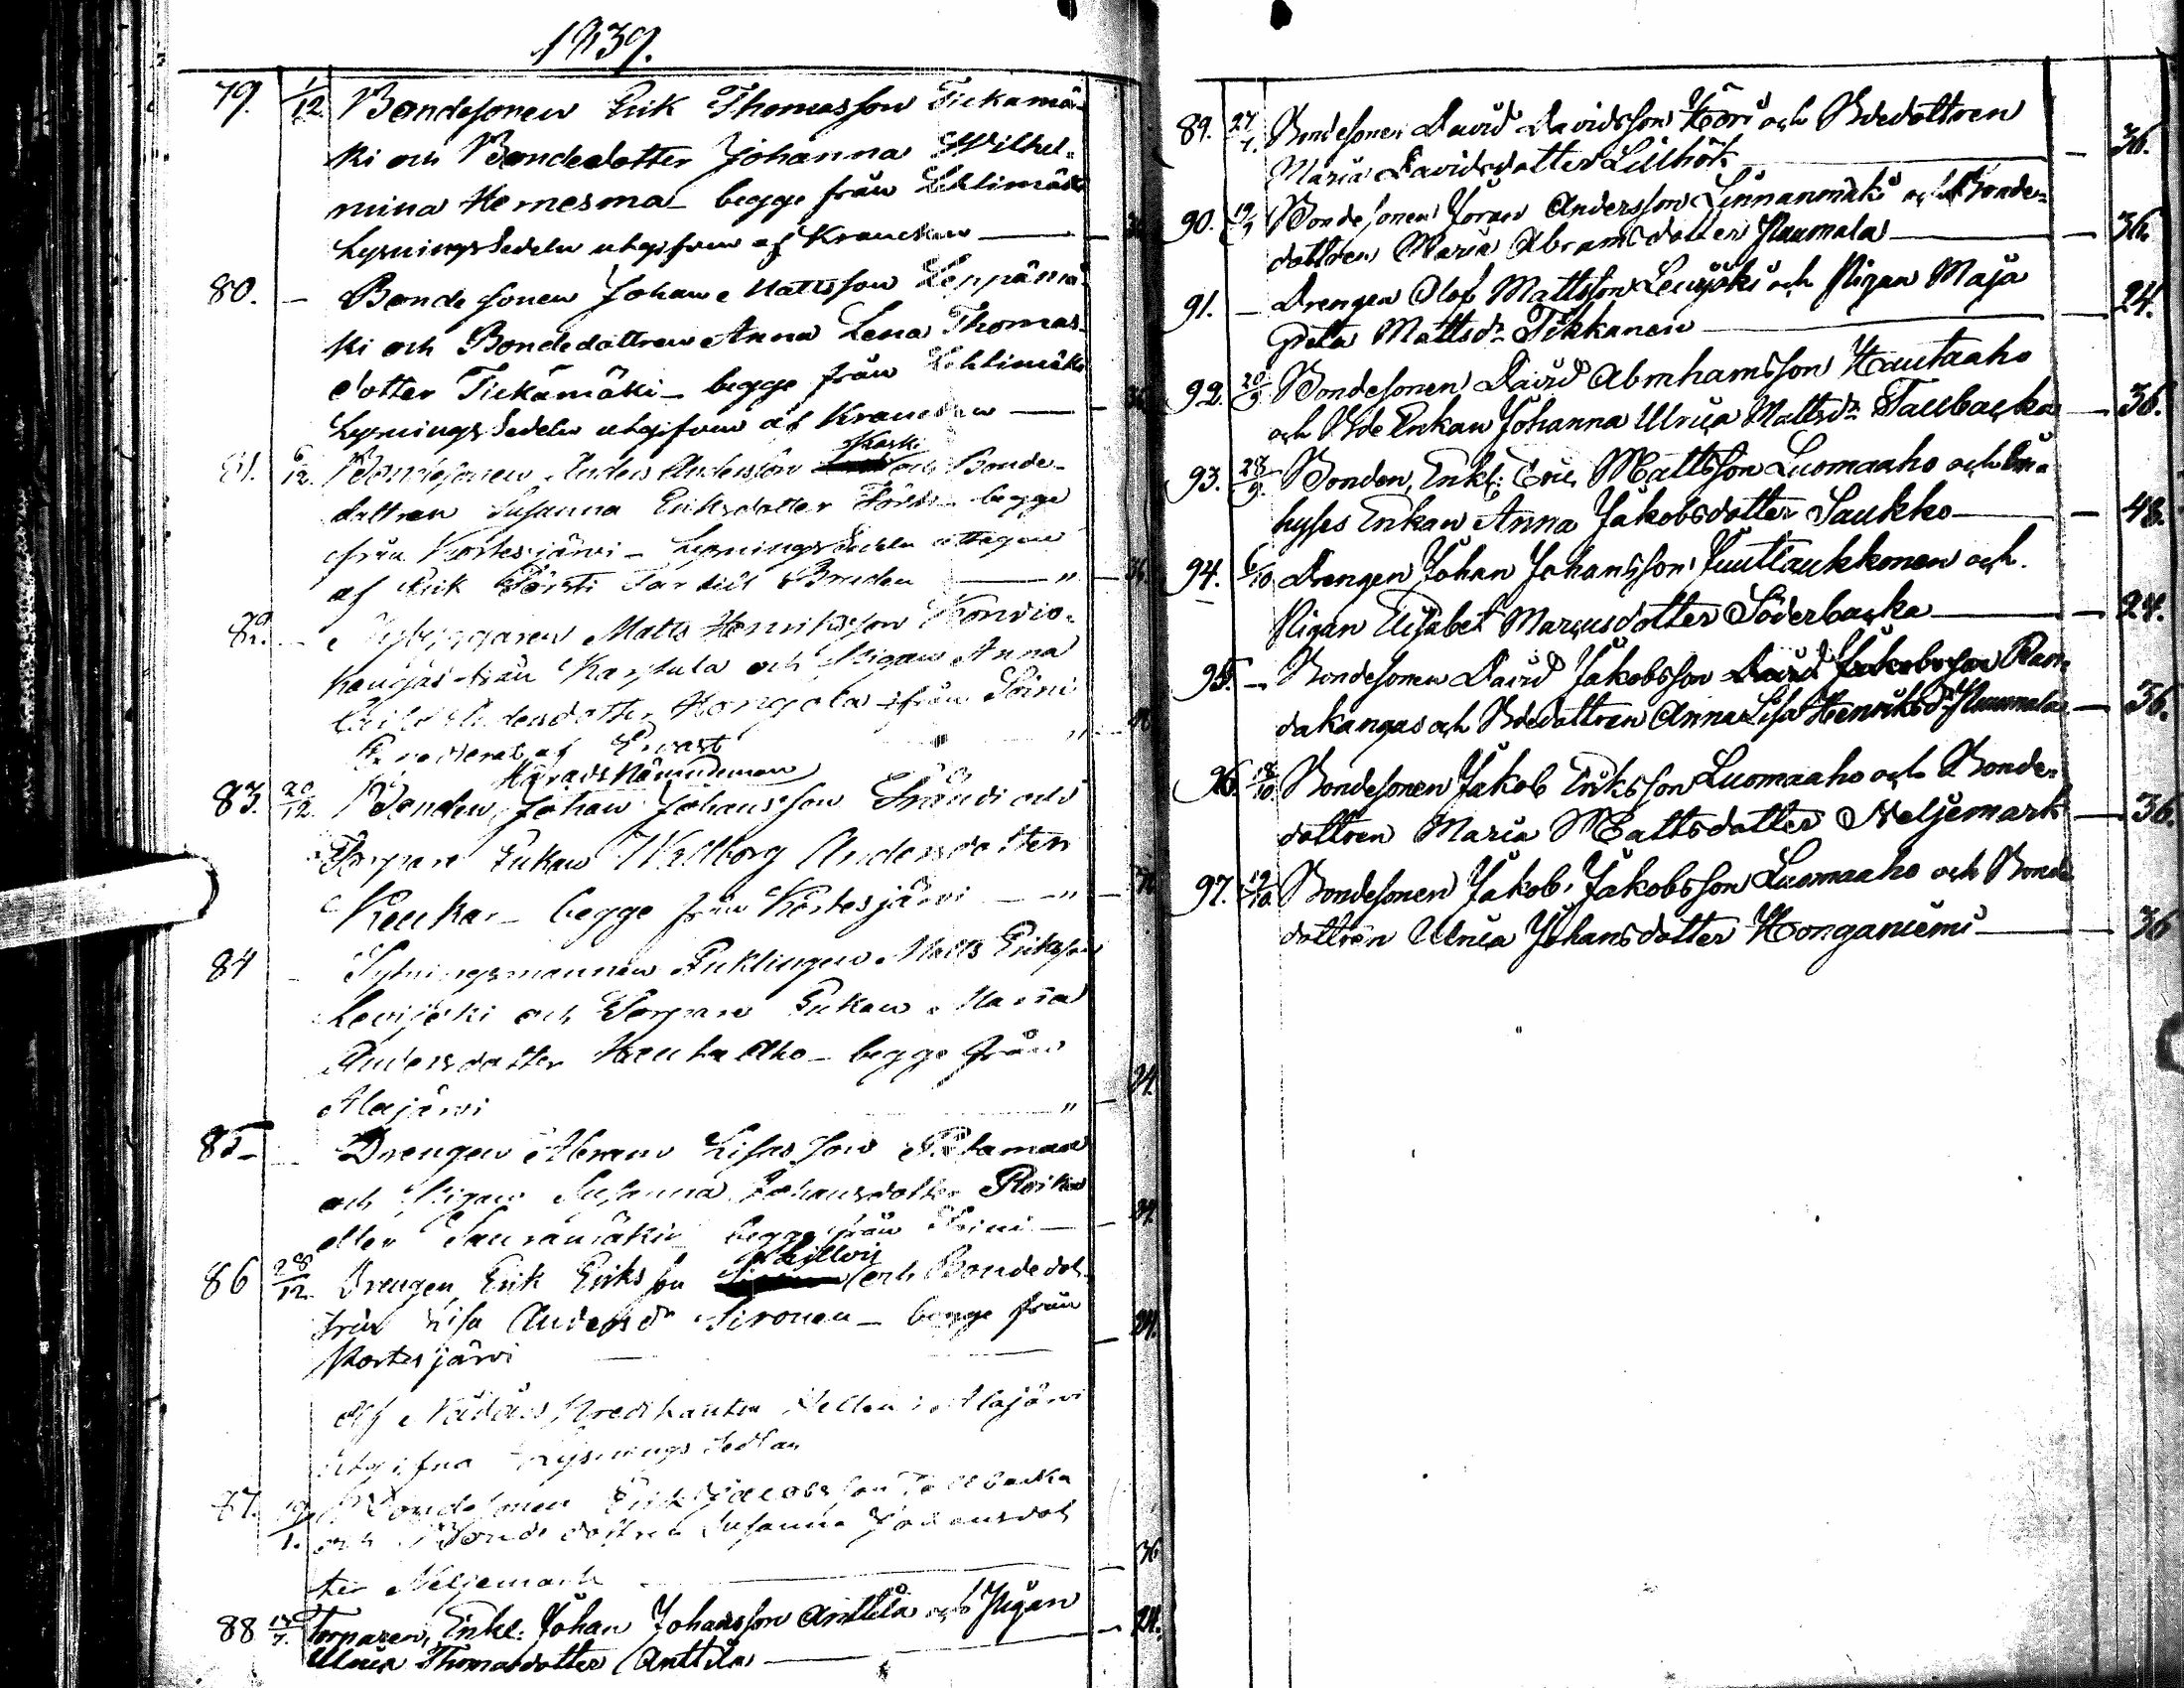 1839.
79. 1/12 Bondesonen Erik Thomasson Tiekamä-
ki och Bondedotter Johanna Wilhel-
mina Hernesma - begge från Lehtimäki
Lysningssedeln utgifven af
80. - Bondesonen Johan Mattsson Leppämä-
ki och Bondedottren Anna Lena Thomas
dotter Tiekämäki - begge från Lehtimäki
Lysningssedeln utgifven af
81. 6/12. Bondesonen Anders Andersson Kaski och Bonde-
dottren Susanna Eriksdotter begge
från Kortesjärvi - Lysningssedeln uttagen
af Erik Försti Far till Bruden - " - 36
82. - Nybyggaren Matts Henriksson
från Karstula och Pigan Anna
Andersdotter från Soini
af
Härads Nämndeman
83. 20/12. Bonden Johan Johansson och
Enkan Wallborg Andersdotter
begge från Kortesjärvi - "
84 - Sytningsmannen Enklingen Matts Eriksson
Levijoki och Enkan Maria
Andersdotter Hautaaho - begge från
Alajärvi - " - 24.
85 - Drengen Abram
och Pigan Susanna Johansdotter
eller begge från Soini - 24.
86 28/12. Drengen Erik Eriksson och Bondedot-
tren Lisa Andersdr Sironen - begge från
Kortesjärvi - 24.
Af Nådårs Predikanten i Alajärvi
utgifna Lysnings Sedlar
87. 19/1. Bondesonen Erik Jacobsson Tallbacka
och Bondedottren Susanna Johansdot
ter Neljemark - 36
88 14/7. Torparen, Enkl: Johan Johansson Anttila och Pigan
Ulrica Thomasdotter Anttila - 24.
89. 27/7. Bondesonen David Davidsson Köri och Bdedottren
Maria Davidsdotter Lillhök - 36.
90. 19/7 Bondesonen Jöran Andersson Linnanmäki och Bonde-
dottren Maria Abramsdotter Puumala - 36.
91. - Drengen Olof Mattsson Levijoki och Pigan Maja
Greta Mattsdr Tikkanen - 24.
92. 20/9. Bondesonen David Abrahamsson Hautaaho
och Bde Enkan Johanna Ulrica Mattsdr Tallbacka - 36.
93. 28/9. Bonden, Enkl: Eric Mattsson Luomaaho och In-
hyses Enkan Anna Jakobsdotter Saukko - 48.
94. 6/10 Drengen Johan Johansson Puutlaukkonen och
Pigan Elisabet Marcusdotter Söderbacka - 24.
95. - Bondesonen David Jakobsson David Jakobsson Ran-
dakangas och Bdedottren Anna Lisa Henriksdr Puumala - 36.
96. 18/10 Bondesonen Jakob Eriksson Luomaaho och Bonde-
dottren Maria Mattsdotter Neljemark - 36.
97. 19/10. Bondesonen Jakob Jakobsson Luomaaho och Bonde
dottren Ulrica Johansdotter Honganiemi - 36